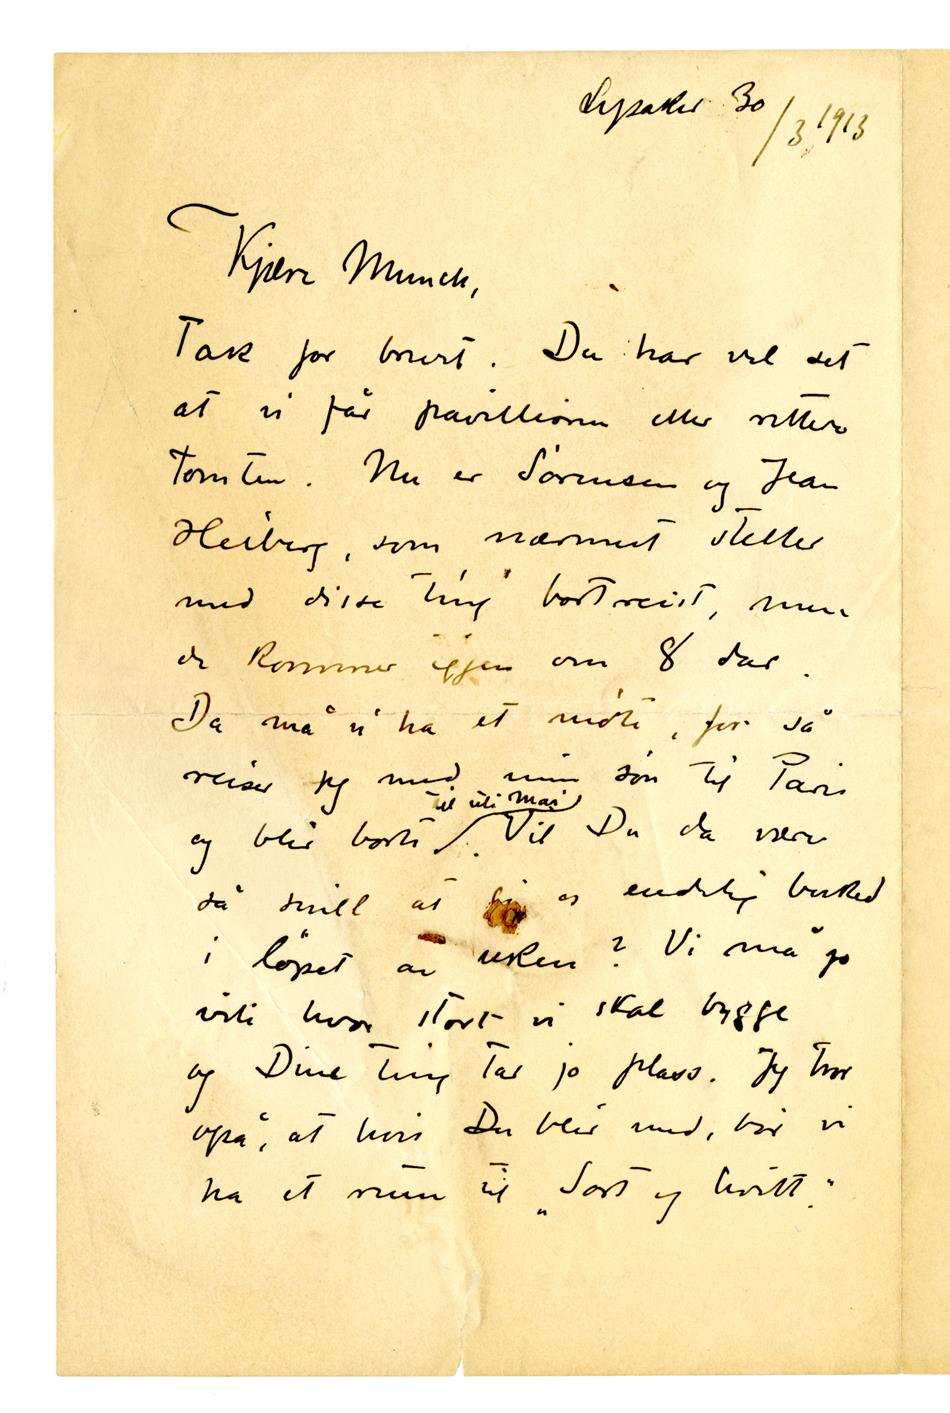 Lysaker 30/3 1913
Kjære Munch,
Tak for brevet. Du har vel set
at vi får pavillionen eller rettere
tomten. Nu er Sørensen og Jean
Heiberg, som nærmest steller
med disse ting bortreist, men
de kommer igjen om 8 dar.
Da må vi ha et møte, for så
reiser jeg med min søn til Paris
til uti Mai
og blir borte. Vil Du da være
så snill at gi os endelig besked
i løpet av uken? Vi må jo
vite hvor stort vi skal bygge
og Dine ting tar jo plass. Jeg tror
også, at hvis Du blir med, bør vi
ha et rum til „Sort og hvitt."